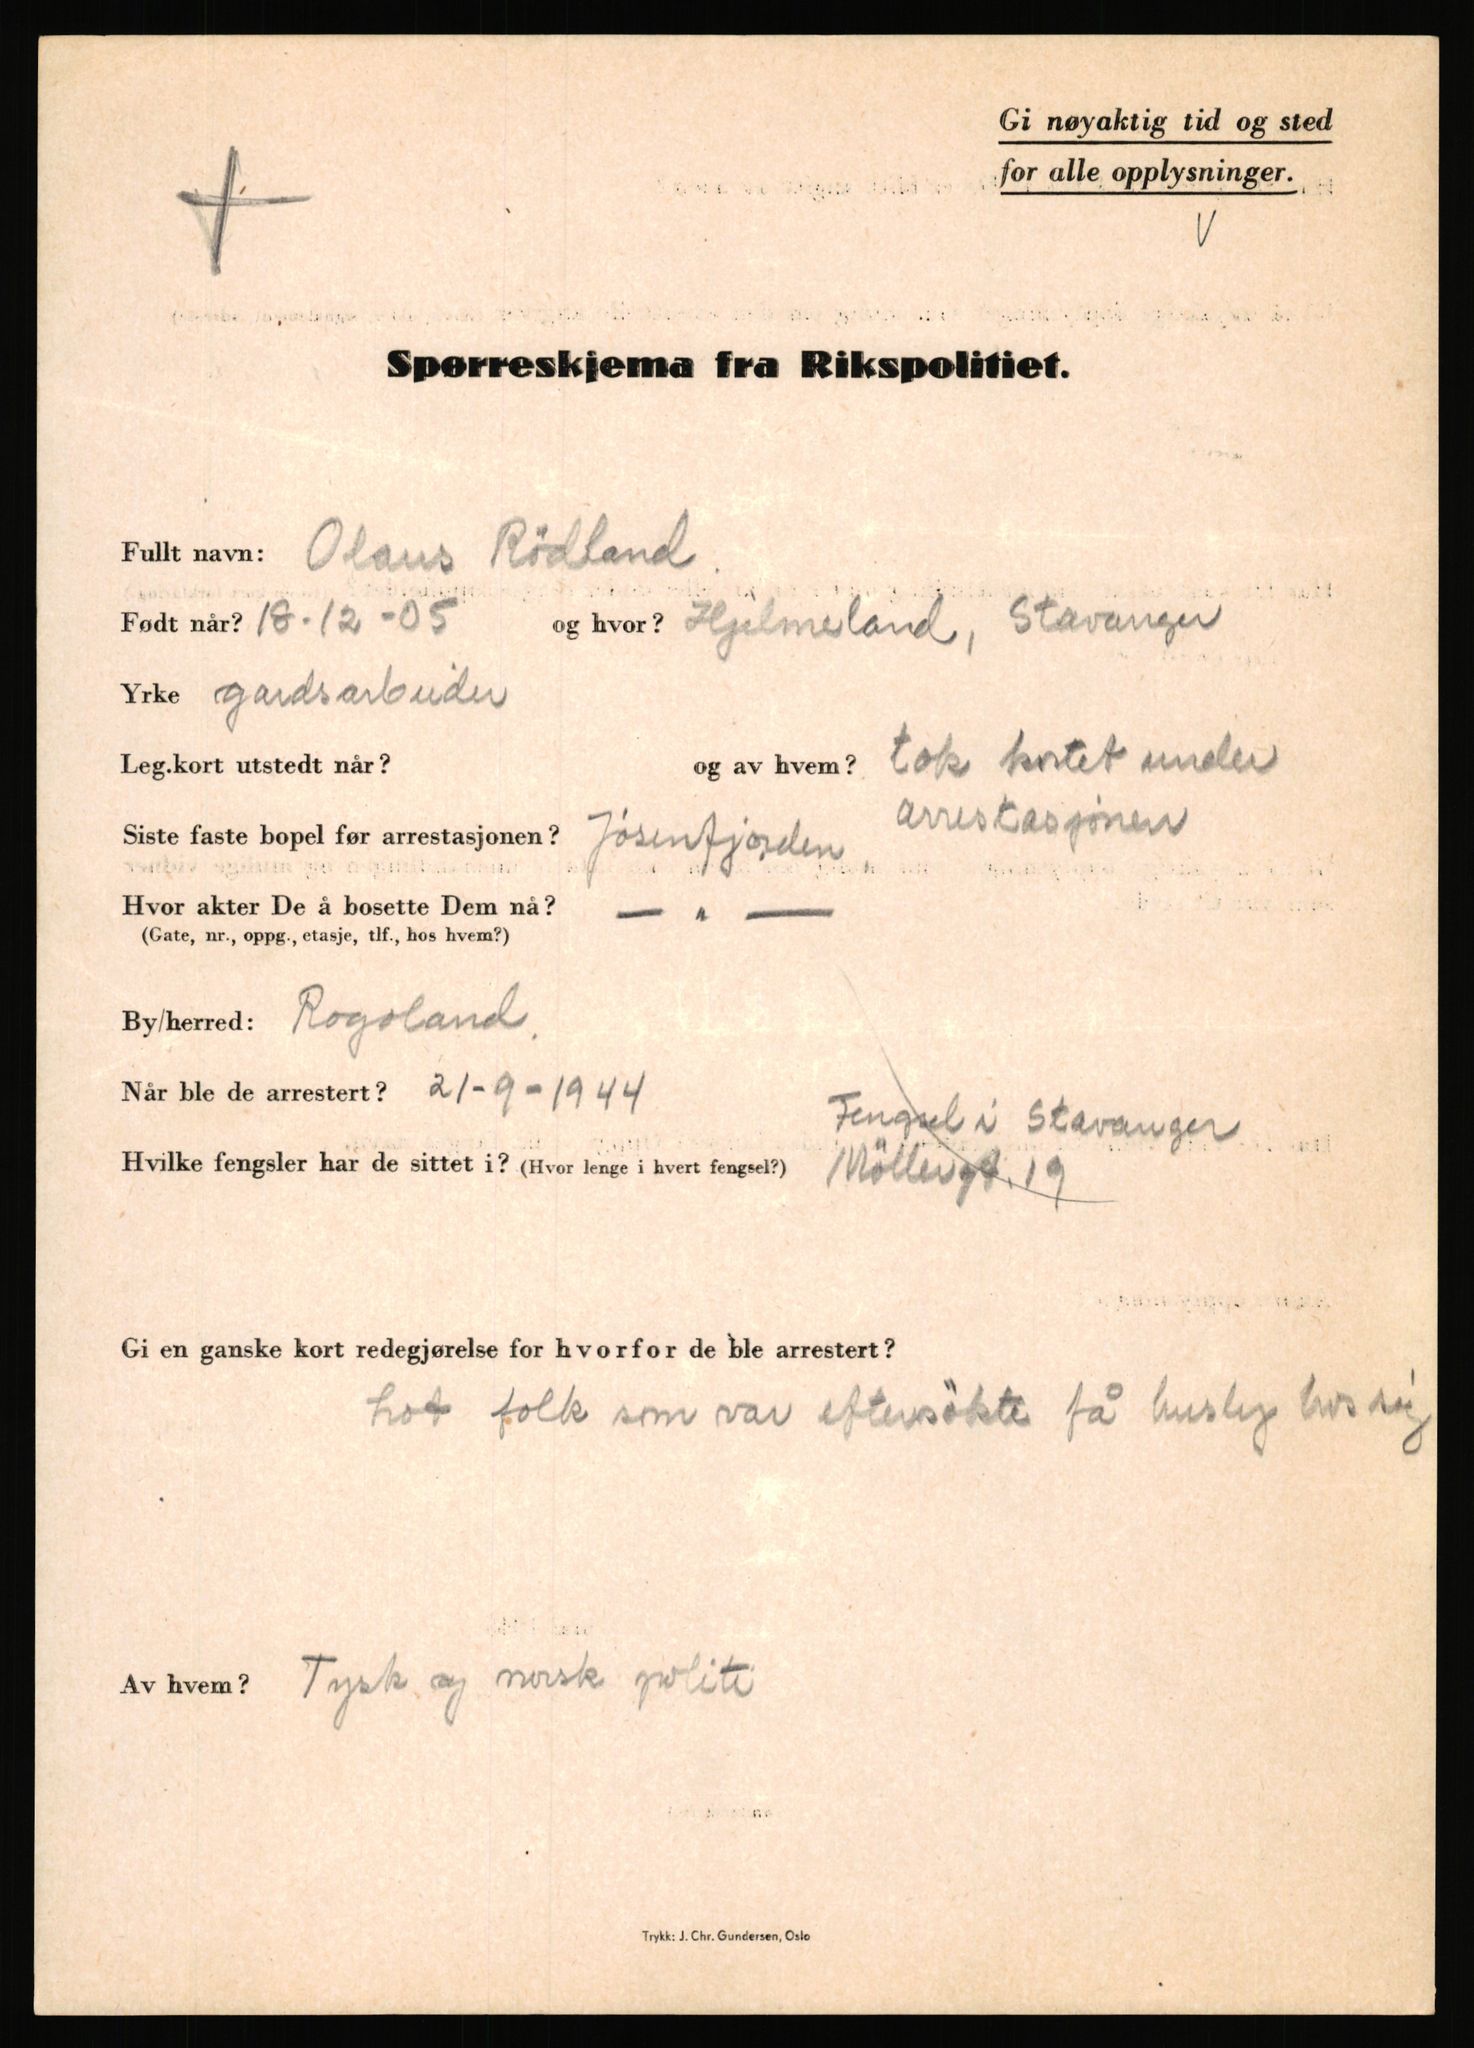 Gi nøyaktig tid og sted
for alle opplysninger.
V
Spørreskjema fra Rikspolitiet.
Fullt navn: Olaus Rödland.
Født når? 18-12-05 og hvor? Hjelmeland, Stavanger
Yrke gardsarbeider
Leg.kort utstedt når? og av hvem? tok kortet under
arrestasjonen
Siste faste bopel før arrestasjonen? Jösenfjorden
Hvor akter De å bosette Dem nå? — " —
(Gate, nr., oppg., etasje, tlf., hos hvem?)
By/herred: Rogoland.
Når ble de arrestert? 21-9-1944
Fengsel i Stavanger
Hvilke fengsler har de sittet i? (Hvor lenge i hvert fengsel?) Möllergt. 19
Gi en ganske kort redegjørelse for hvorfor de ble arrestert?
lot folk som var eftersökte få husly hos sig
Av hvem? Tysk og norsk politi
Trykk: J. Chr. Gundersen, Oslo